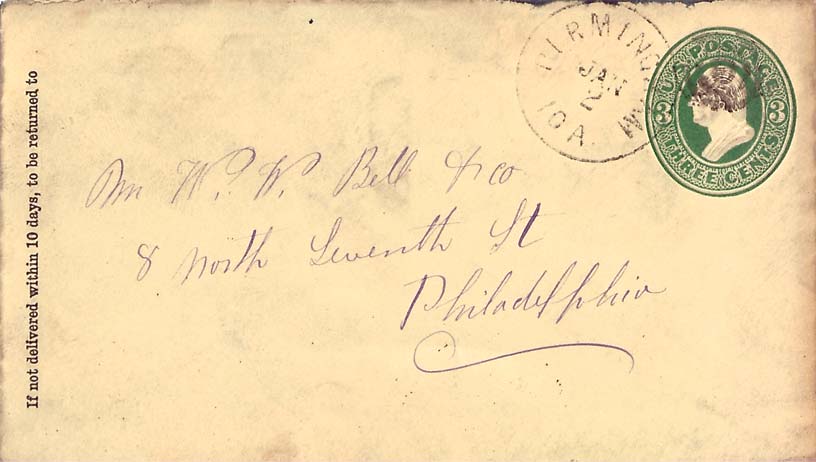 BIRMING
JAN
2
10 A.M
U.S. POSTAGE
3 3
THREE CENTS
W. W. Bell & co
8 North Seventh St
Philadelphia
If not delivered within 10 days, to be returned to